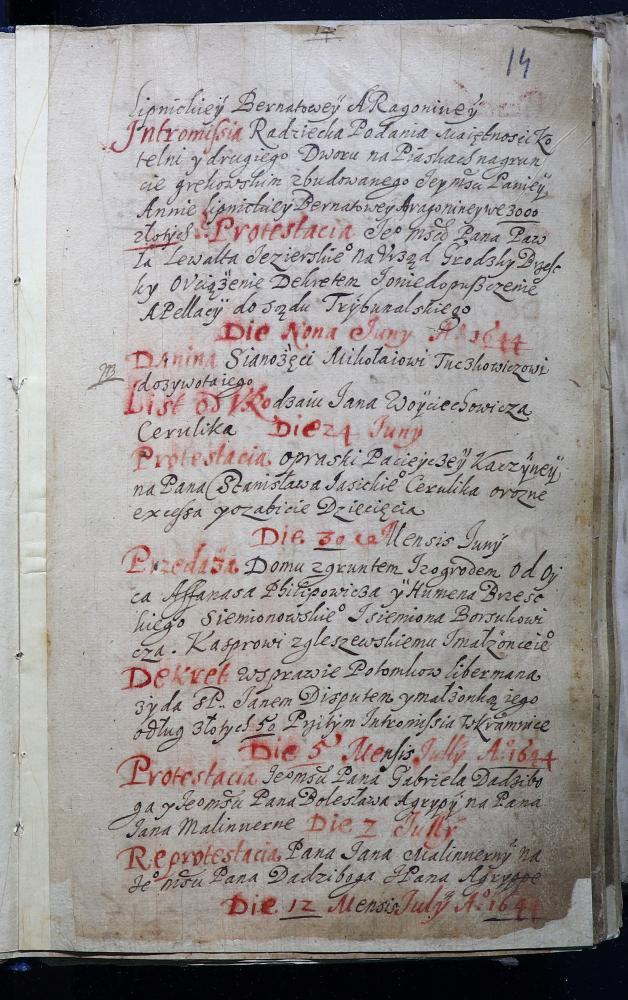 14
Lipnickiey Bernatowey ARagoniney
Intromissia Radziecka Podania Maiętnosci Ko
telni y drugiego Dworu na Piaskach na grun
cie grekowskim zbudowanego Jey mści Paniey
Annie Lipnickiey Bernatowey Aragoniney we 3000
złotych. Protestacia Je° Mści Pana Paw
ła Lewalta Jezierskie° na Vrząd Grodzky Brzesc
ky O Vciążenie Dekretem Y oniedopuszczenie
APellacÿ do sądu Trybunalskiego
Die Nona Juny A° 1644
Danina Sianożęci Mikołaiowi Tuczkowiczowi
dozywotniego
List od Vrodzaiu Jana Woyciechowicza
Cerulika Die 24 Juny
Protestacia opraski Pacieyczey Karzyney
na Pana Stanisława Jasickie° Cerulika orozne
excessa yozabicie Dziecięcia
Die 30 Mensis Juny
Przedaża Domu zgruntem Izogrodem od Oy
ca Affanasa Philipowicza y Humena Brzesc
kiego Siemionowskie° Isiemiona Borsukowi
cza. Kasprowi zgleszewskiemu Imałżonceie°
Dekret wsprawie Potomkow libermana
żyda sP. Janem Disputem ymałżonką iego
odług złotych 50 Przitym Intromissia wKramnice
Die 5 Mensis Jully A° 1644
Protestacia Jeomści Pana Gabriela Dadzibo
ga yJeomści Pana Bolesława Agrypÿ na Pana
Jana Malinuerne Die 7 Jully
Reprotestacia Pana Jana Malinuerny na
Je° mści Pana Dadziboga IPana Agryppe
Die 12 Mensis July A° 1644